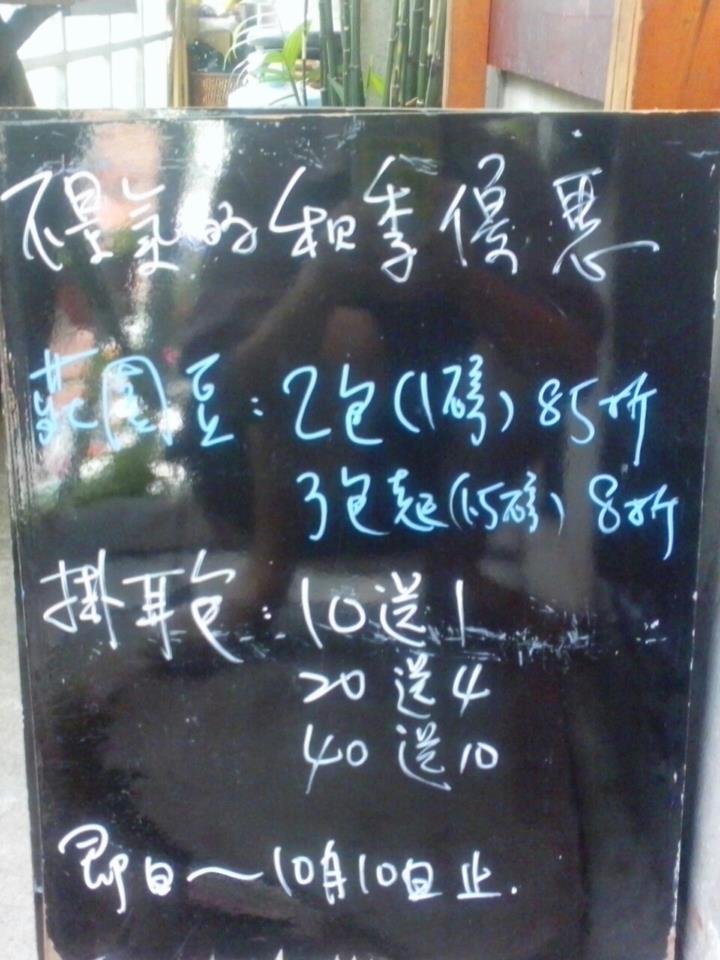 不景氣的季優惠
莊園豆：2包(1磅) 85折
3包起(1.5磅) 8折
掛耳包：10送1
20送4
40送10
即日～10月10日止.